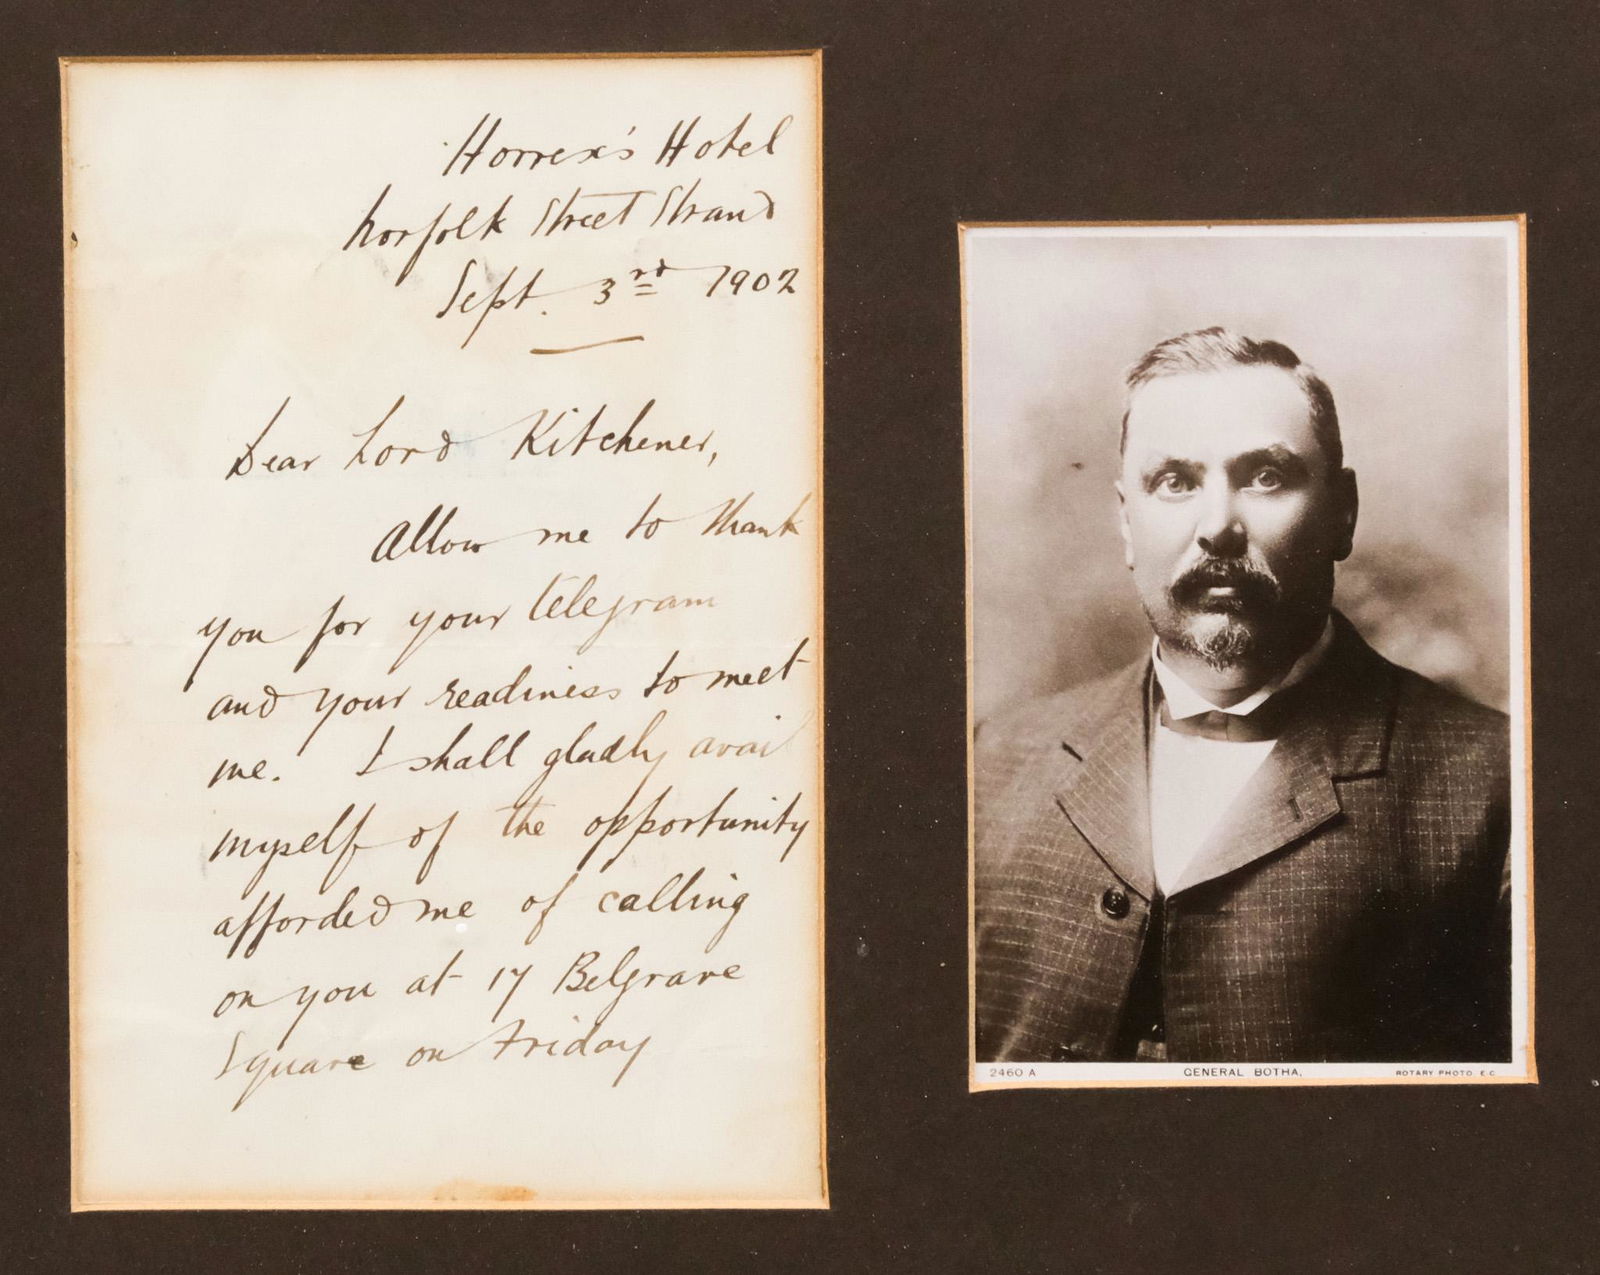 Horrex's Hotel
Norfolk Street Strand
Sept. 3rd 1902
Dear Lord Kitchener,
Allow me to thank
you for your telegram
and your readiness to meet
me. I shall gladly avail
myself of the opportunity
afforded me of calling
on you at 17 Belgrave
Square on Friday
2460 A GENERAL BOTHA. ROTARY PHOTO. E.C.